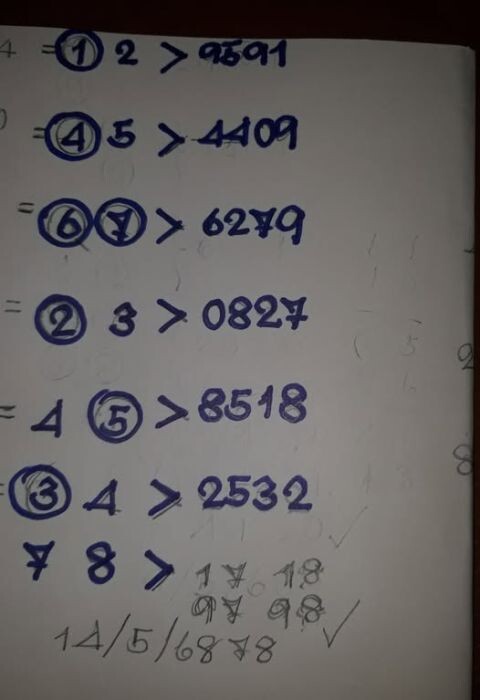 4 = 1 2 > 9591
0 = 4 5 > 4409
= 6 7 > 6279
= 2 3 > 0827
= 4 5 > 8518
= 3 4 > 2532
7 8 > 17 18
97 98
14/5/6878
2
8